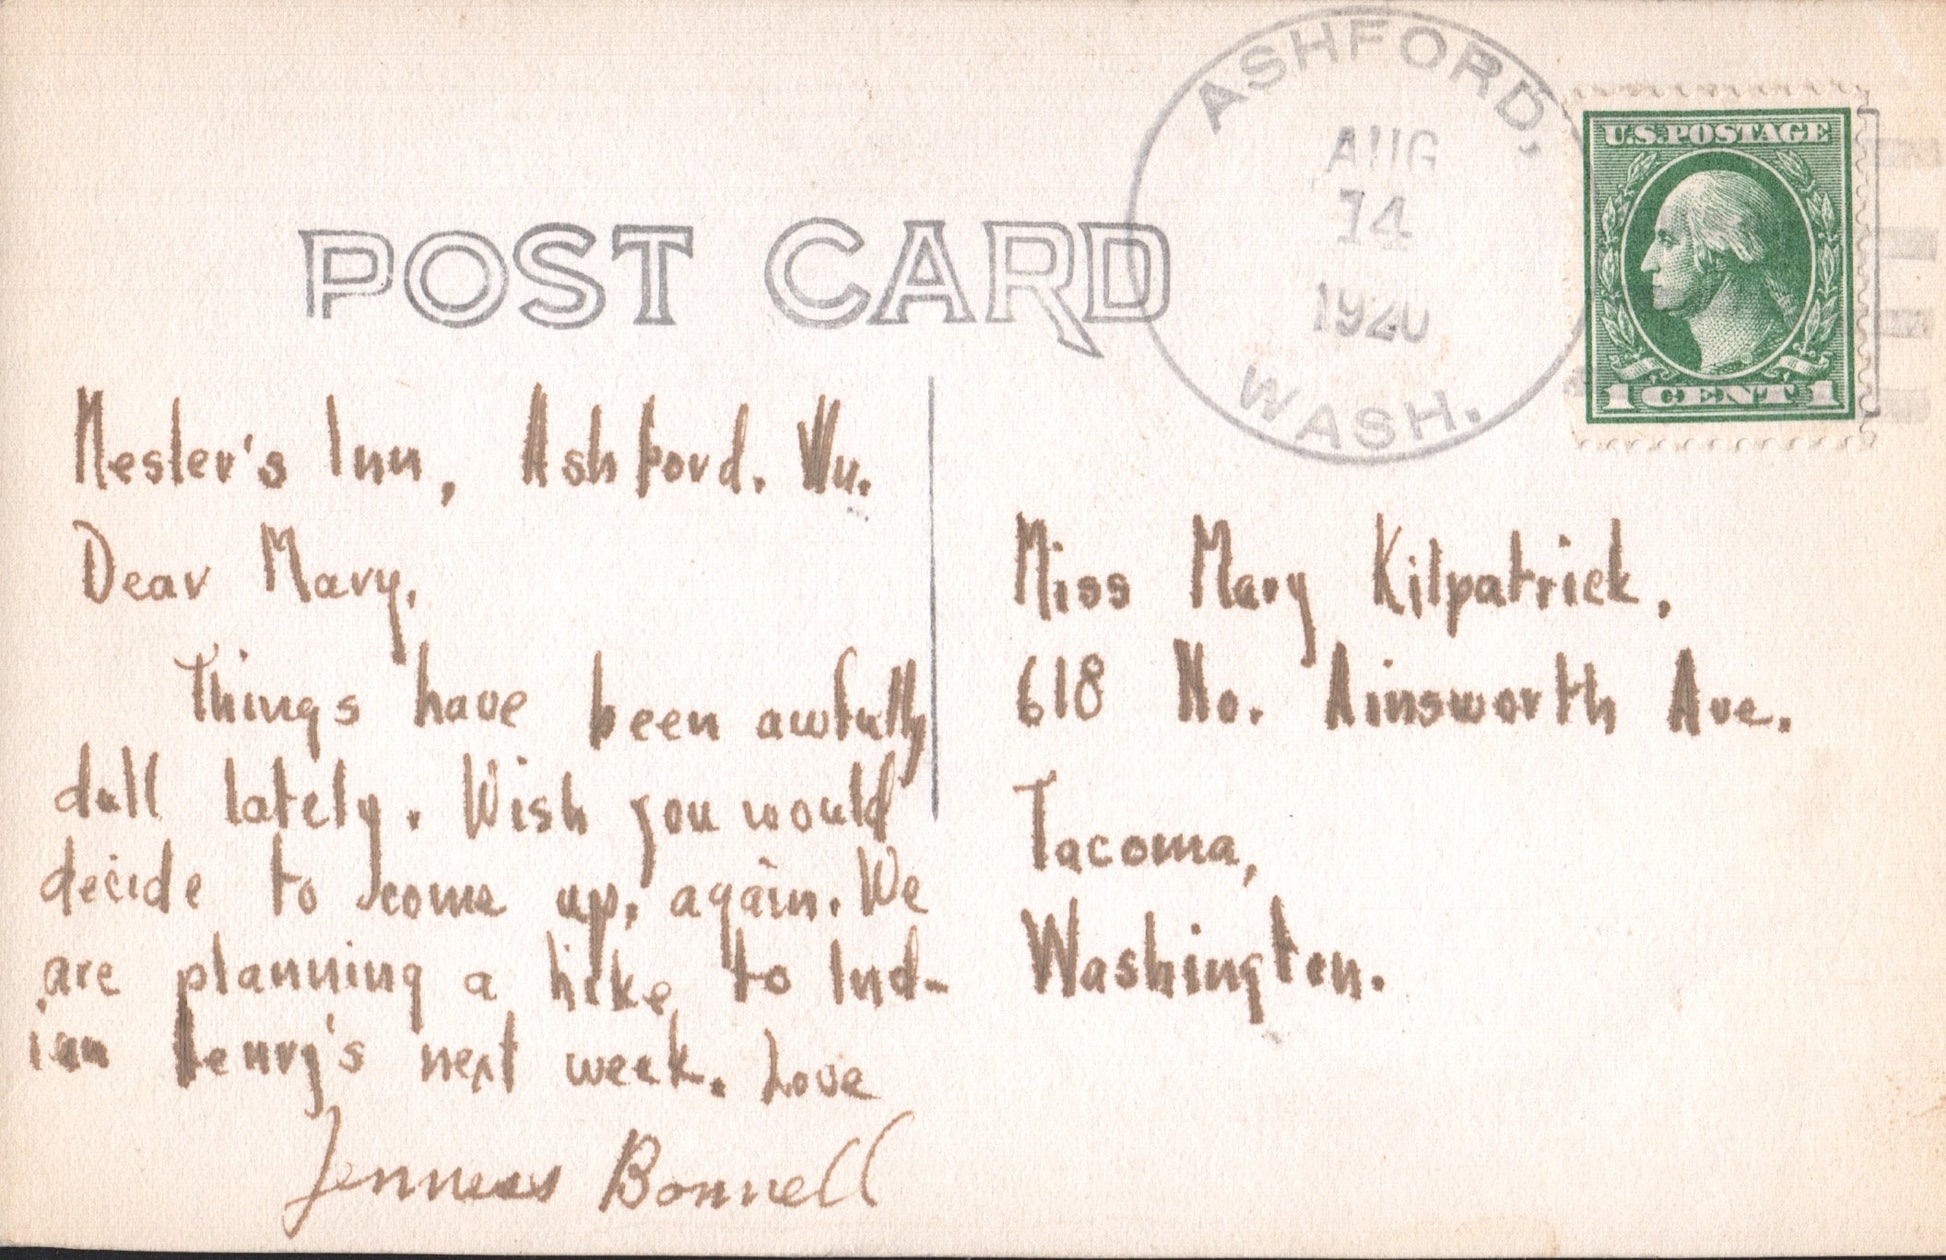 POST CARD
ASHFORD,
AUG
14
1920
WASH.
U.S. POSTAGE
1 CENT 1
Nesler's Inn, Ashford. Wn.
Dear Mary,
Things have been awfully
dull lately. Wish you would
decide to come up, again. We
are planning a hike to Ind-
ian Henry's next week. Love
Jenness Bonnell
Miss Mary Kilpatrick,
618 No. Ainsworth Ave.
Tacoma,
Washington.